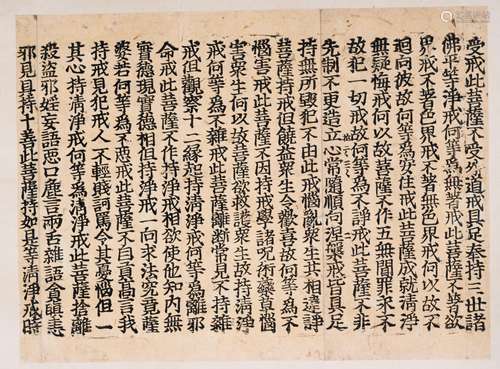 受戒此菩薩不受外道戒具足奉持三世諸
佛平等淨戒何等為無著戒此菩薩不著欲
界戒不著色界戒不著無色界戒何以故不
迴向彼故何等為安住戒此菩薩成就清淨
無疑悔戒何以故菩薩不作五無間罪来不
故犯一切戒故何等為不諍戒此菩薩不非
先制不更造立心常隨順向涅槃戒皆具足
持無所毀犯不由此戒惱亂眾生共相違諍
菩薩持戒但饒益眾生令歡喜故何等為不
惱害戒此菩薩不因持戒學諸呪術藥草惱
害眾生何以故菩薩欲救護眾生故持清淨
戒何等為不雜戒此菩薩離斷常見不持雜
戒但觀察十二緣起持清淨戒何等為離邪
命戒此菩薩不作持淨戒相欲使他知內無
實德現實德相但持淨戒一向求法究竟薩
婆若何等為不惡戒此菩薩不自貢高言我
持戒見犯戒人不輕賤訶罵令其憂惱但一
其心持清淨戒何等為清淨戒此菩薩捨離
殺盜邪婬妄語惡口麁言兩舌雜語貪瞋恚
邪見具持十善此菩薩持如是等清淨戒時